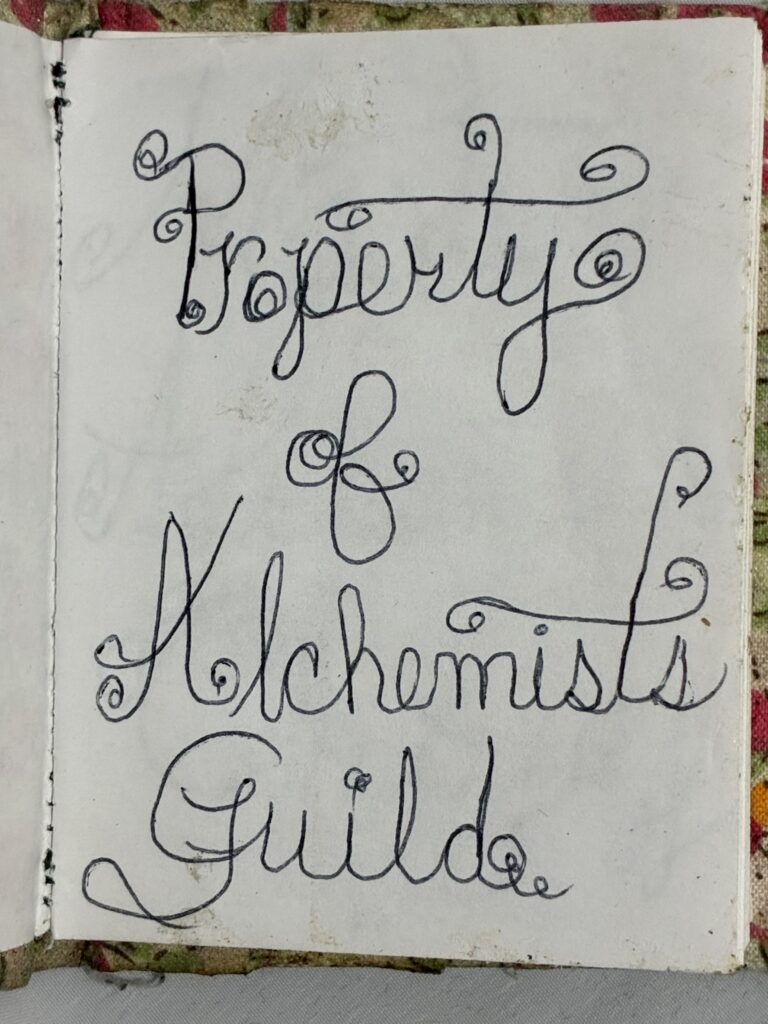 Property
of
Alchemists
Guild